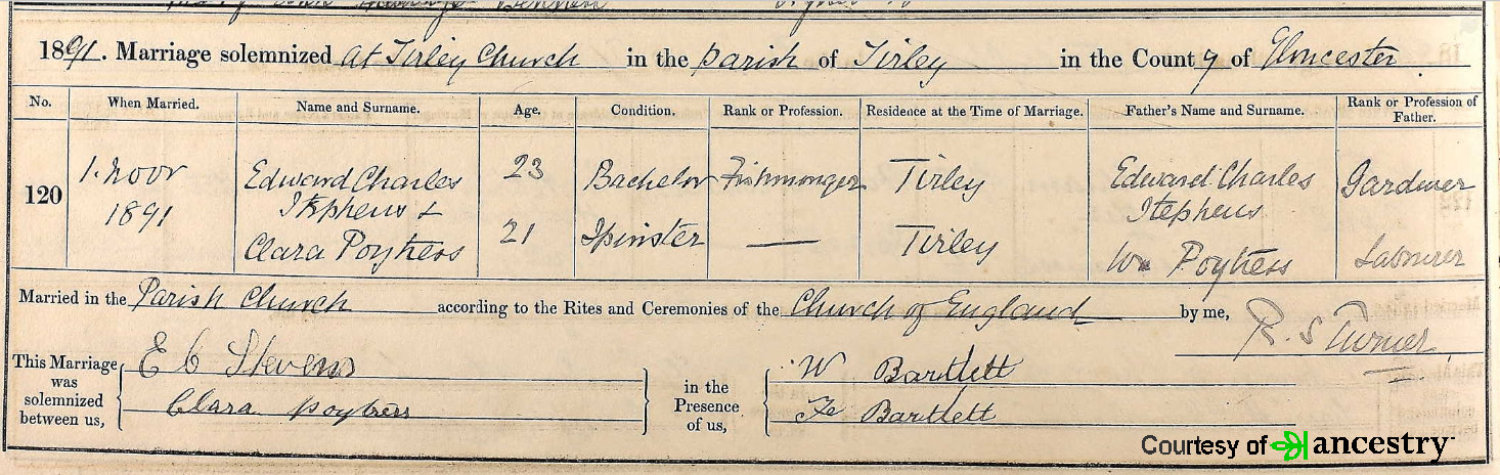 1891. Marriage solemnized at Tirley Church in the parish of Tirley in the County of Gloucester
No. When Married. Name and Surname. Age. Condition. Rank or Profession. Residence at the Time of Marriage. Father's Name and Surname. Rank or Profession of Father.
120
1. Novr 1891
Edward Charles Stephens &
23
Bachelor
Fishmonger
Tirley
Edward Charles Stephens
Gardiner
Clara Poythess
21
Spinster
—
Tirley
Wm Poythess
Labourer
Married in the Parish Church according to the Rites and Ceremonies of the Church of England by me, R. S Turner
This Marriage was solemnized between us,
E C Stevens
Clara Poytress
in the Presence of us,
W Bartlett
Bartlett
Courtesy of ancestry